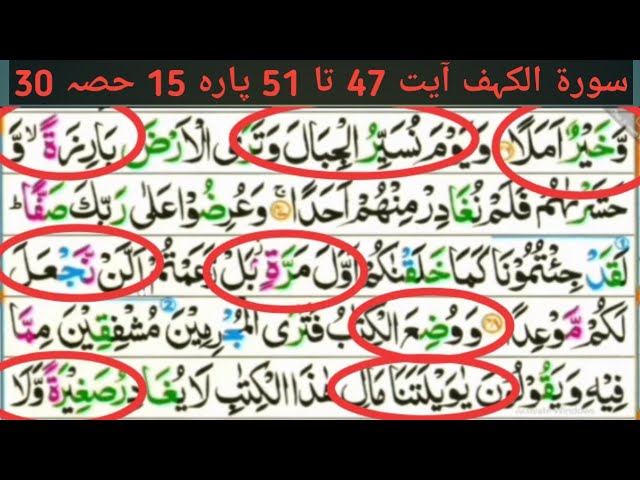 سورۃ الکہف آیت 47 تا 51 پارہ 15 حصہ 30
وَّخَيْرٌ اَمَلًا ﴿۴۶﴾ وَيَوْمَ نُسَيِّرُ الْجِبَالَ وَتَرَى الْاَرْضَ بَارِزَةً ۙ وَّ
حَشَرْنٰهُمْ فَلَمْ نُغَادِرْ مِنْهُمْ اَحَدًا ۚ﴿۴۷﴾ وَعُرِضُوْا عَلٰى رَبِّكَ صَفًّا ؕ
لَقَدْ جِئْتُمُوْنَا كَمَا خَلَقْنٰكُمْ اَوَّلَ مَرَّةٍۢ ز بَلْ زَعَمْتُمْ اَلَّنْ نَّجْعَلَ
لَكُمْ مَّوْعِدًا ﴿۴۸﴾ وَوُضِعَ الْكِتٰبُ فَتَرَى الْمُجْرِمِيْنَ مُشْفِقِيْنَ مِمَّا
فِيْهِ وَيَقُوْلُوْنَ يٰوَيْلَتَنَا مَالِ هٰذَا الْكِتٰبِ لَا يُغَادِرُ صَغِيْرَةً وَّلَا
Activate Windows